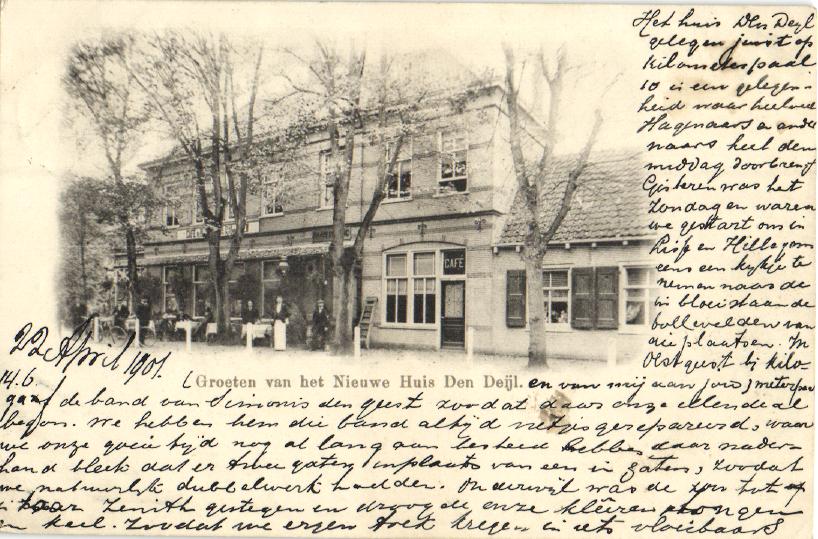 Het huis Den Deyl
gelegen juist op
kilometerpaal
10 is een gelegen-
heid waar heel veel
Hagenaars en
naars heel den
middag doorbreng
Gisteren was het
Zondag en waren
we gestart om in
Lisse en Hillegom
eens een kijkje te
nemen naar de
in bloei staande
bollevelden van
die plaatsen. In
Oestgeest bij kilo-
22 April 1901.
CAFE
(Groeten van het Nieuwe Huis Den Deijl. en van mij aan jou) meterpaal
14.6.
gaf de band van Simonis den geest zoodat daar onze ellende al
begon. We hebben hem die band altijd netjes gerepareerd, waar
we onze goeie tijd nog al lang aan besteed hebben daar nader-
hand bleek dat er twee gaten, inplaats van een in zaten, zoodat
we natuurlijk dubbel werk hadden. Onderwijl was de zon tot op
haar Zenith gestegen en droogde onze kleeren tongen
en keel. Zoodat we ergen trek kregen in iets vloeibaars